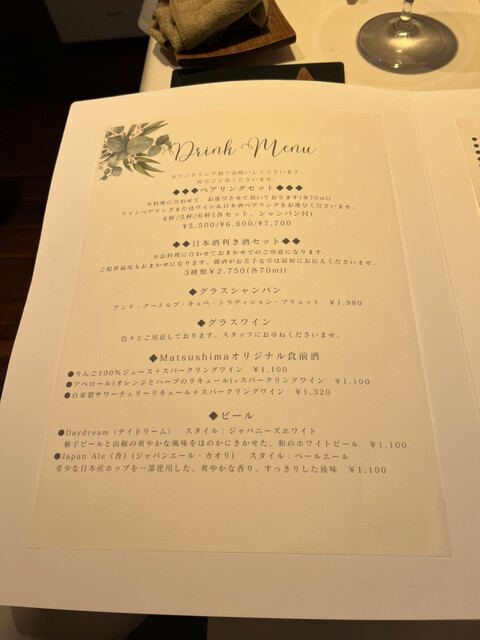 Drink Menu
※ワンドリンク制でお願いしてございます。
何卒ご了承くださいませ。
◆◆◆ペアリングセット◆◆◆
※お料理に合わせて、お選びさせて頂いております(各70ml)
ワインペアリングまたはワイン&日本酒ペアリングをお選びくださいませ。
4杯/5杯/6杯(各セット、シャンパン付)
¥5,500/¥6,600/¥7,700
◆◆日本酒利き酒セット◆◆
※お料理に合わせておまかせでのご用意になります
ご提供温度もおまかせになります。燗酒がお苦手な方は最初にお伝えくださいませ。
3種類¥2,750(各70ml)
◆グラスシャンパン
アンリ・グートルブ・キュベ・トラディション・ブリュット ¥1,980
◆グラスワイン
色々とご用意しております。スタッフにお尋ねくださいませ。
◆Matsushimaオリジナル食前酒
●りんご100%ジュース+スパークリングワイン ¥1,100
●アペロール(オレンジとハーブのリキュール)+スパークリングワイン ¥1,100
●自家製サワーチェリーリキュール+スパークリングワイン ¥1,320
◆ビール
●Daydream (デイドリーム) スタイル:ジャパニーズホワイト
柚子ピールと山椒の爽やかな風味をほのかにきかせた、和のホワイトビール ¥1,100
●Japan Ale《香》(ジャパンエール・カオリ) スタイル:ペールエール
希少な日本産ホップを一部使用した、爽やかな香り、すっきりした後味 ¥1,100